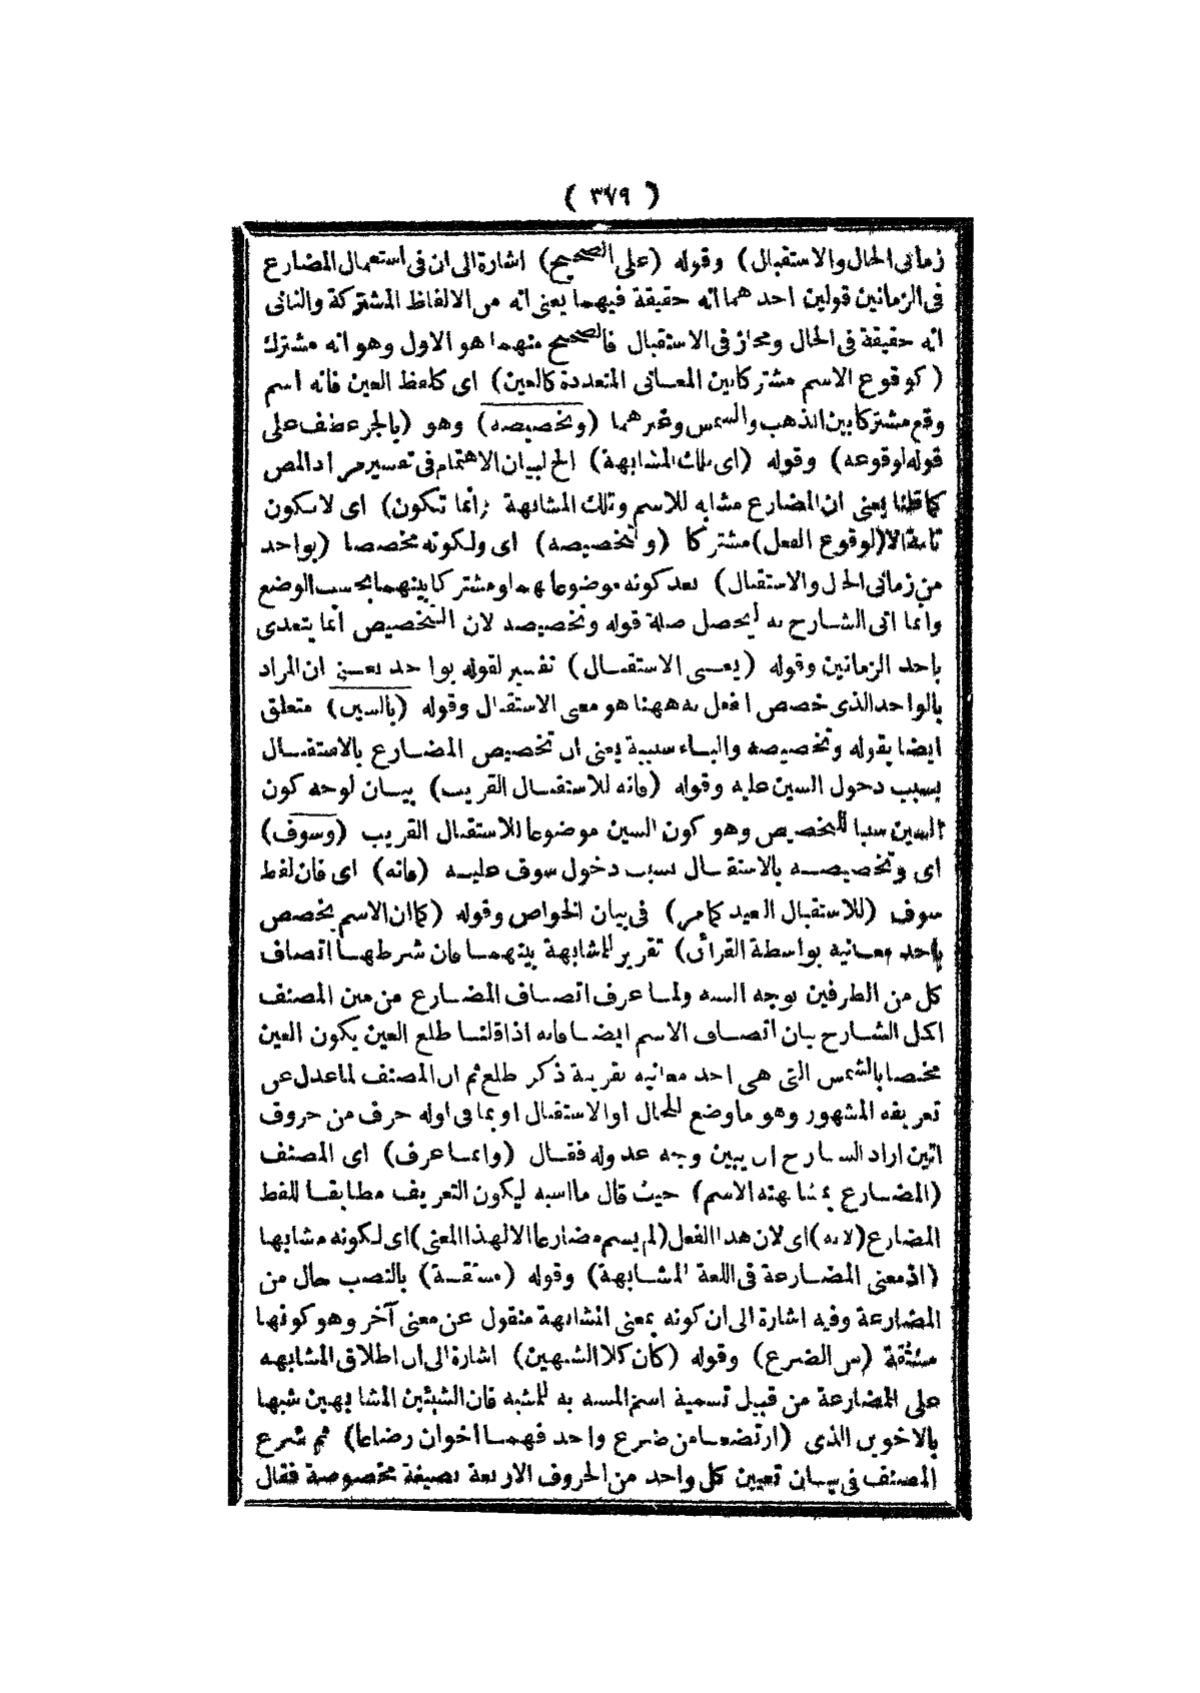 ( ٣٧٩ )
زمانى الحال والاستقبال) وقوله (على الصحيح) اشارة الى ان فى استعمال المضارع
فى الزمانين قولين احدهما انه حقيقة فيهما يعنى انه من الالفاظ المشتركة والثانى
انه حقيقة فى الحال ومجاز فى الاستقبال فالصحيح منهما هو الاول وهو انه مشترك
(كوقوع الاسم مشتركا بين المعانى المتعددة كالعين) اى كلفظ العين فانه اسم
وقع مشتركا بين الذهب والشمس وغيرهما (وتخصيصه) وهو (بالجر عطف على
قوله لوقوعه) وقوله (اى تلك المشابهة) الخ لبيان الاهتمام فى تفسير مراد المص
كما قلنا يعنى ان المضارع مشابه للاسم وتلك المشابهة (انما تكون) اى لا تكون
تامة الا (لوقوع الفعل) مشتركا (وتخصيصه) اى ولكونه مخصصا (بواحد
من زمانى الحال والاستقبال) بعد كونه موضوعا لهما ومشتركا بينهما بحسب الوضع
وانما اتى الشارح به ليحصل صلة قوله وتخصيصه لان التخصيص انما يتعدى
باحد الزمانين وقوله (يعنى الاستقبال) تفسير لقوله بواحد يعنى ان المراد
بالواحد الذى خصص الفعل به ههنا هو معنى الاستقبال وقوله (بالسين) متعلق
ايضا بقوله وتخصيصه والباء سببية يعنى ان تخصيص المضارع بالاستقبال
بسبب دخول السين عليه وقوله (فانه للاستقبال القريب) بيان لوجه كون
السين سببا للتخصيص وهو كون السين موضوعا للاستقبال القريب (وسوف)
اى وتخصيصه بالاستقبال بسبب دخول سوف عليه (فانه) اى فان لفظ
سوف (للاستقبال البعيد كما مر) فى بيان الخواص وقوله (كما ان الاسم يخصص
باحد معانيه بواسطة القرائن) تقرير للمشابهة بينهما فان شرطها اتصاف
كل من الطرفين بوجه الشبه ولما عرف اتصاف المضارع من متن المصنف
اكمل الشارح بيان اتصاف الاسم ايضا فانه اذا قلنا طلع العين يكون العين
مختصا بالشمس التى هى احد معانيه بقرينة ذكر طلع ثم ان المصنف لما عدل عن
تعريفه المشهور وهو ما وضع للحال او الاستقبال او بما فى اوله حرف من حروف
اتين اراد الشارح ان يبين وجه عدوله فقال (وانما عرف) اى المصنف
(المضارع بمشابهته الاسم) حيث قال ما اشبه ليكون التعريف مطابقا للفظ
المضارع (لانه) اى لان هذا الفعل (لم يسم مضارعا الا لهذا المعنى) اى لكونه مشابها
(اذ معنى المضارعة فى اللغة المشابهة) وقوله (مشتقة) بالنصب حال من
المضارعة وفيه اشارة الى ان كونه بمعنى المشابهة منقول عن معنى آخر وهو كونها
مشتقة (من الضرع) وقوله (كأن كلا الشبهين) اشارة الى ان اطلاق المشابهه
على المضارعة من قبيل تسمية اسم المشبه به للمشبه فان الشيئين المشابهين شبها
بالاخوين الذى (ارتضعا من ضرع واحد فهما اخوان رضاعا) ثم شرع
المصنف فى بيان تعيين كل واحد من الحروف الاربعة بصيغة مخصوصة فقال